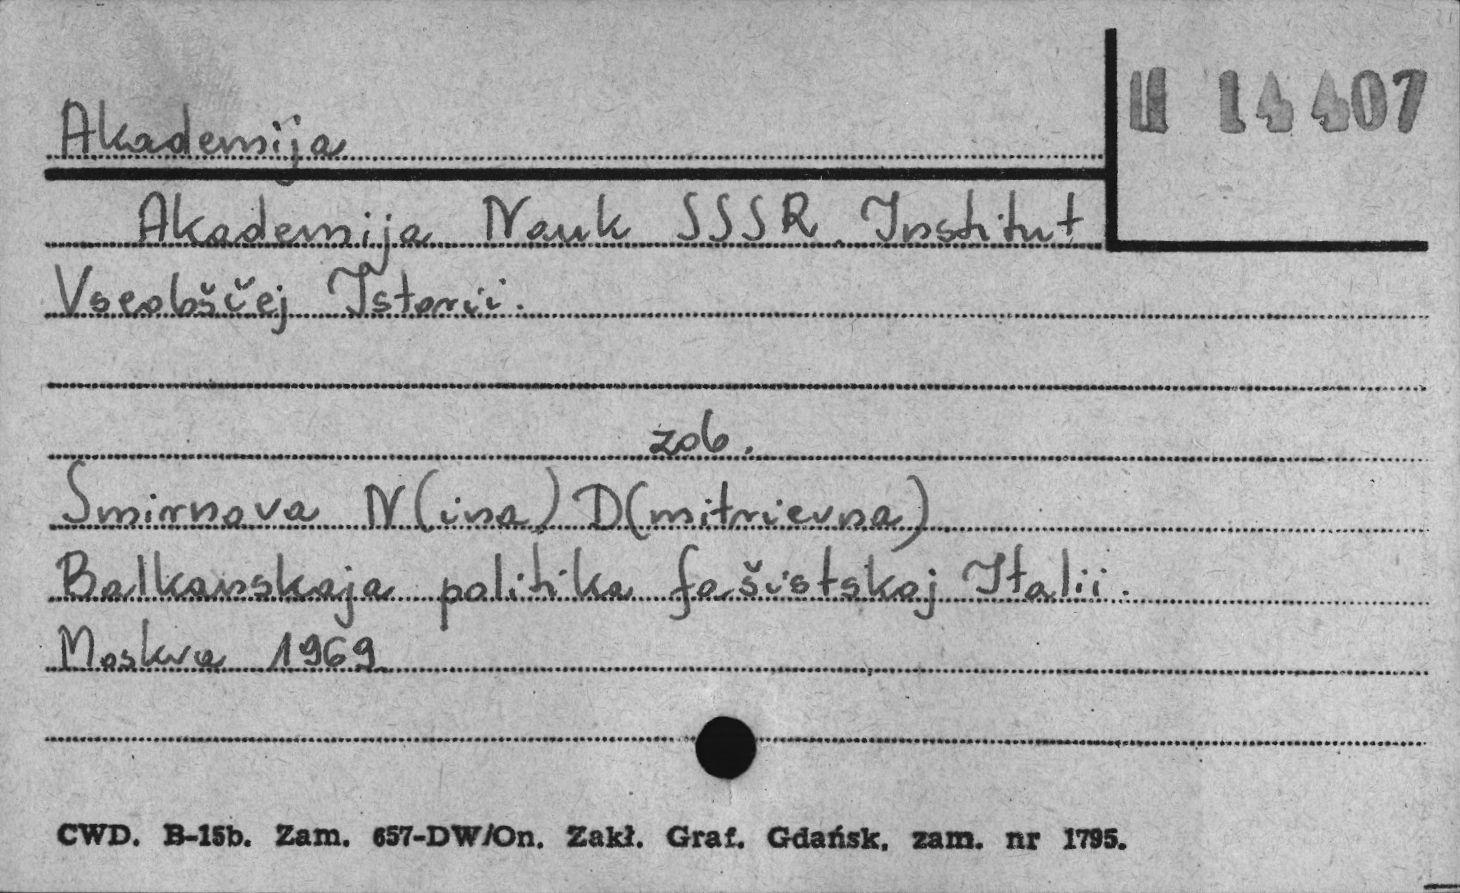 Akademija
II 14407
Akademija Nauk SSSR. Institut
Vseobščej Istorii.
zob.
Smirnova N(ina) D(mitrievna).
Balkanskaja politika fašistskoj Italii.
Moskva 1969
CWD. B-15b. Zam. 657-DW/On. Zakł. Graf. Gdańsk, zam. nr 1795.